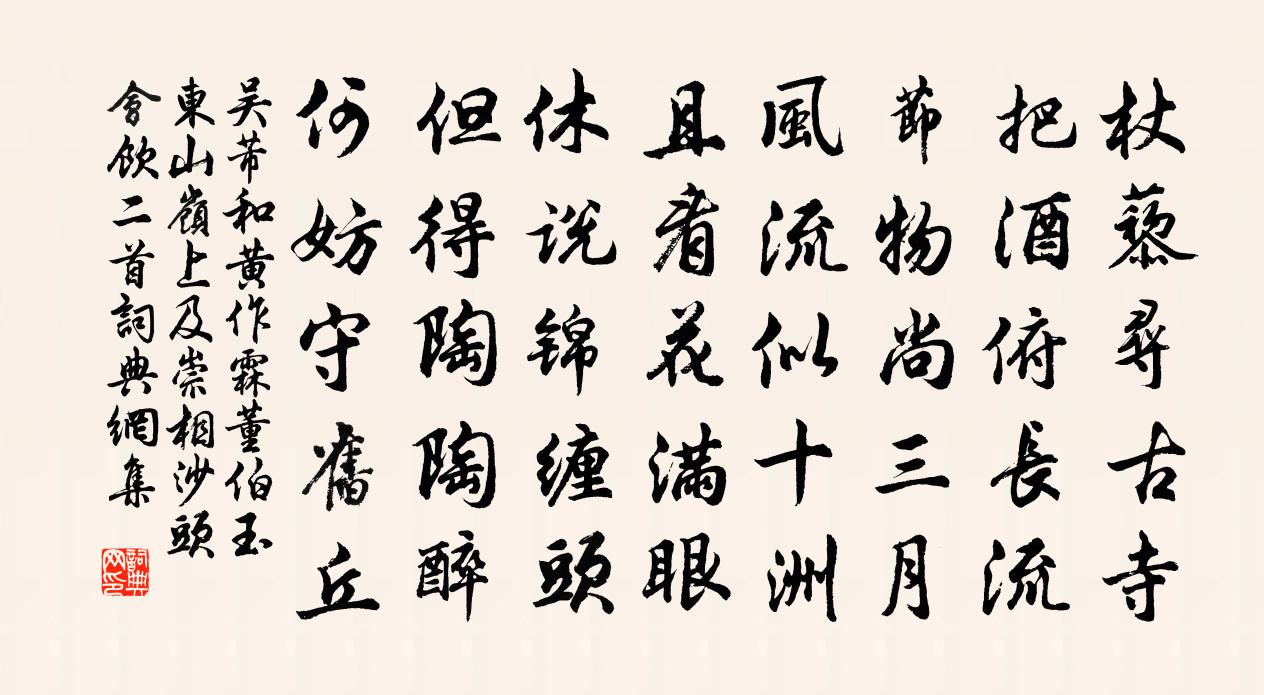 杖藜尋古寺
把酒俯長流
節物尚三月
風流似十洲
且看花滿眼
休说锦缠頭
但得陶陶醉
何妨守舊丘
吴芾和黄作霖董伯玉
東山嶺上及崇相沙頭
會飲二首詞典網集
詞典網印